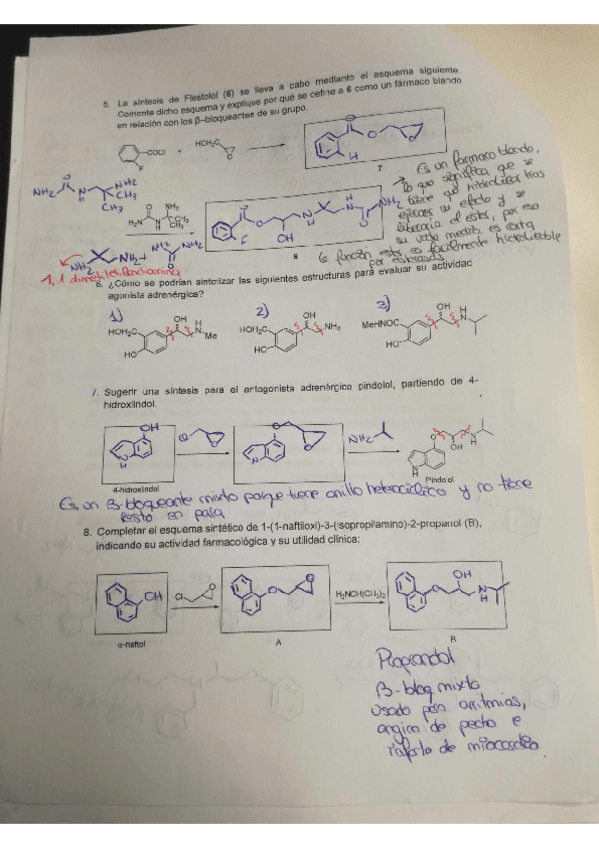 5. La síntesis de Flestolol (6) se lleva a cabo mediante el esquema siguiente.
Comente dicho esquema y explique por qué se define a 6 como un fármaco blando
en relación con los β–bloqueantes de su grupo.
COCl
F
+
HOH₂C
O
7
→ Es un fármaco blando,
lo que significa que se
tiene que hidrolizar tras
ejercer su efecto y se
por eso
su vida media es corta
6 función ester es facilmente hidrolizable
por esterasas
NH₂
NH₂
CH₃
CH₃
NH₂
H₂N
OH
6
1,1 dimetiletilendiamina
6. ¿Cómo se podrían sintetizar las siguientes estructuras para evaluar su actividad
agonista adrenérgica?
1)
2)
3)
HOH₂C
HO
OH
H
N
Me
HOH₂C
HO
OH
NH₂
MeHNOC
HO
OH
H
N
7. Sugerir una síntesis para el antagonista adrenérgico pindolol, partiendo de 4-
hidroxiindol.
OH
NH₂
OH
4-hidroxiindol
Pindolol
Es un B-bloqueante mixto porque tiene anillo heterocíclico y no tiene
resto en para
8. Completar el esquema sintético de 1-(1-naftiloxi)-3-(isopropilamino)-2-propanol (B),
indicando su actividad farmacológica y su utilidad clínica:
OH
Cl
O
H₂NCH(CH₃)₂
OH
α-naftol
A
B
Propranolol
B-bloq mixto
usado para arritmias,
angina de pecho e
infarto de miocardio